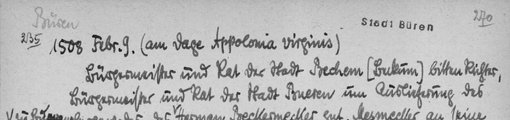 Büren
Stadt Büren
270
235
1508 Febr. 9. (am dage Appolonia virginis)
Bürgermeister und Rat der Stadt Bechem [Beckum] bitten Richter,
Bürgermeister und Rat der Stadt Bueren um Auslieferung des
des Herman